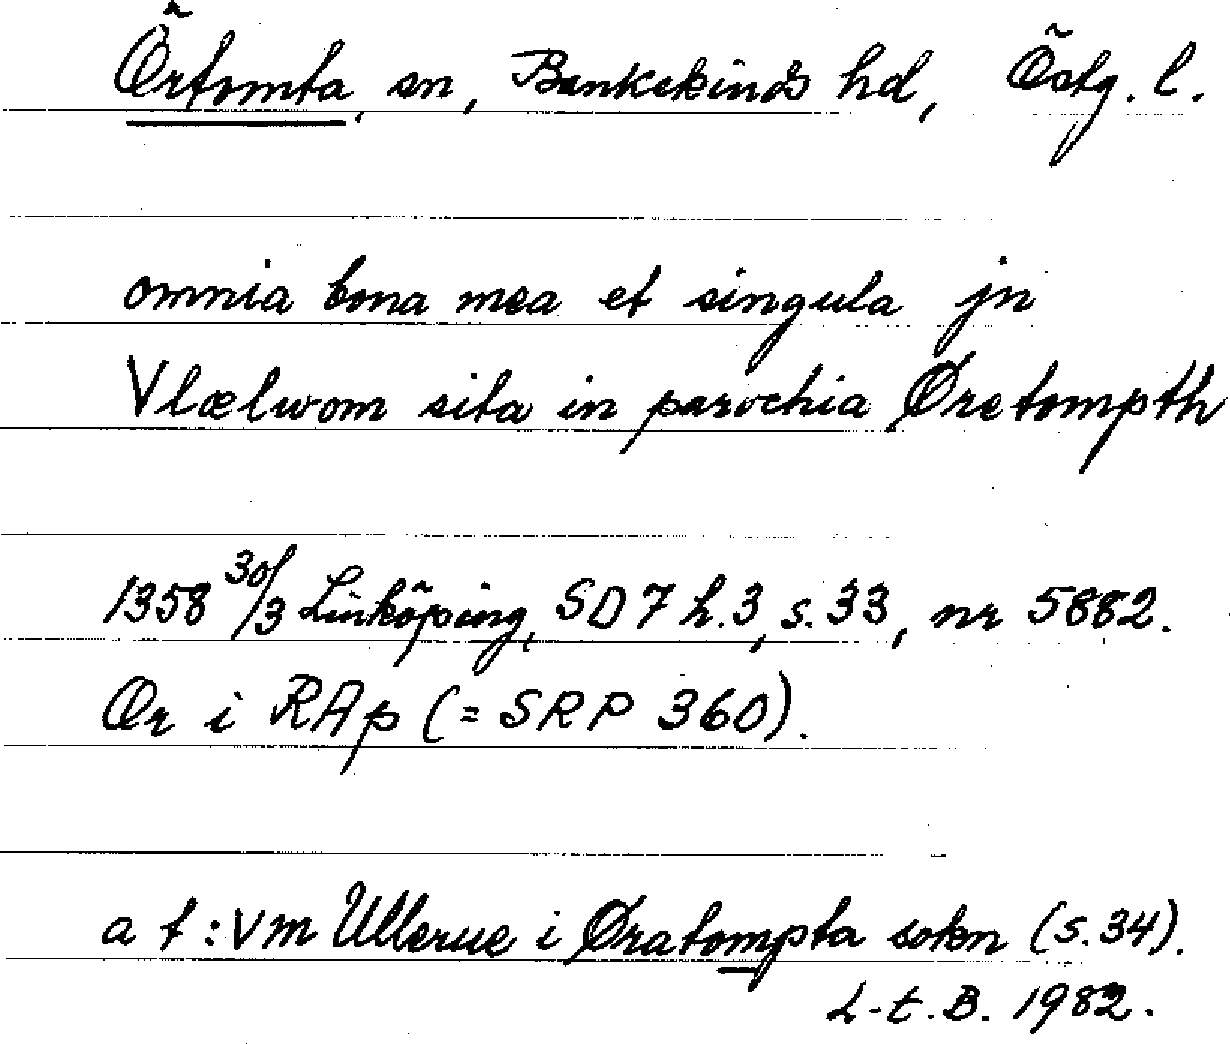 Örtomta, sn, Bankekinds hd, Östg. l.
omnia bona mea et singula jn
Vlælwom sita in parochia Øretompth
1358 30/3 Linköping, SD 7 h. 3, s. 33, nr 5882.
Or i RAp (= SRP 360).
a t : vm Ullerue i Øratompta sokn (s. 34).
L-t. B. 1982.